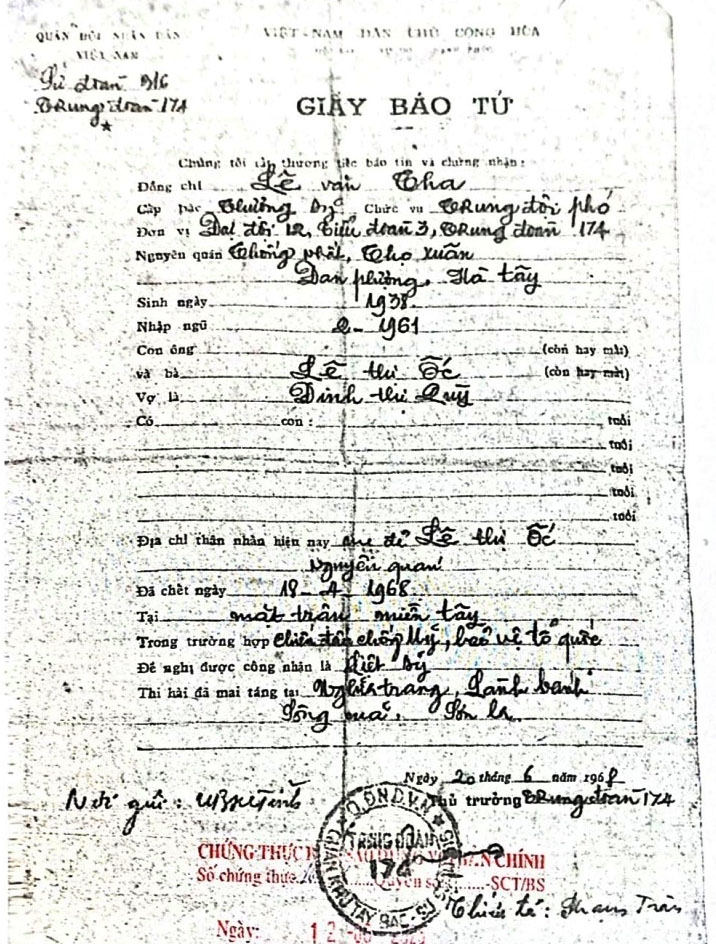 QUÂN ĐỘI NHÂN DÂN
VIỆT NAM
VIỆT-NAM DÂN CHỦ CỘNG HÒA
Sư đoàn 316
Trung đoàn 174
GIẤY BÁO TỬ
Chúng tôi thương tiếc báo tin và chứng nhận:
Đồng chí Lê văn Tha
Cấp bậc Thượng sỹ Chức vụ Trung đội phó
Đơn vị Đại đội 12, Tiểu đoàn 3, Trung đoàn 174
Nguyên quán Thống nhất, Thọ xuân
Đan phượng, Hà tây
Sinh ngày 1938
Nhập ngũ 2-1961
Con ông (còn hay mất)
và bà Lê thị Ốc (còn hay mất)
Vợ là Đinh thị Quỹ
Có con: tuổi
tuổi
tuổi
tuổi
tuổi
Địa chỉ thân nhân hiện nay mẹ đẻ Lê thị Ốc
Nguyên quán
Đã chết ngày 18-4-1968
Tại mặt trận miền tây
Trong trường hợp chiến đấu chống Mỹ, bảo vệ tổ quốc
Đề nghị được công nhận là Liệt sỹ
Thi hài đã mai táng tại Nghĩa trang, Lành banh
Sông mã, Sơn la
Ngày 20 tháng 6 năm 1968
Nơi gửi: UBHC Tỉnh
Thủ trưởng Trung đoàn 174
Q.Đ.N.D.V.N
TRUNG ĐOÀN
174
QUÂN KHU TÂY BẮC
CHỨNG THỰC BẢN CHÍNH
Số chứng thực Quyển số -SCT/BS
Thiếu tá: Phạm Trần
Ngày: